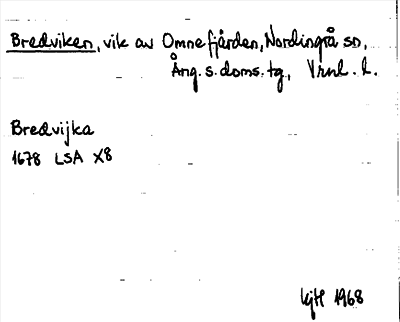 Bredviken, vik av Omnefjärden, Nordingrå sn,
Ång. s. doms. tg., Vrnl. l.
Bredvijka
1678 LSA X8
kjH 1968